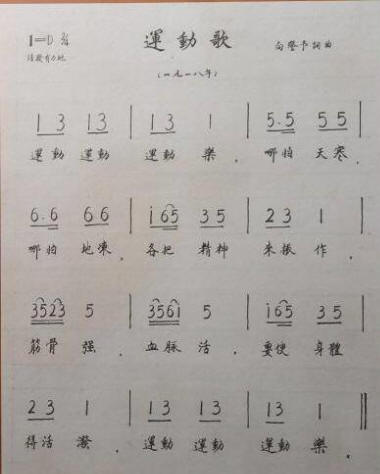 1=D 2/4 運動歌 向警予詞曲
活潑有力地
(一九一八年)
1 3 1 3 | 1 3 1 | 5. 5 5 5 |
運動 運動 運動 樂 . 哪怕 天寒 .
6. 6 6 6 | i 6 5 3 5 | 2 3 1 |
哪怕 地凍 . 各把 精神 來振 作 .
3 5 2 3 5 | 3 5 6 i 5 | i 6 5 3 5 |
筋骨 强 . 血脈 活 . 要使 身體
2 3 1 | 1 3 1 3 | 1 3 1 ||
得活 潑 . 運動 運動 運動 樂 .